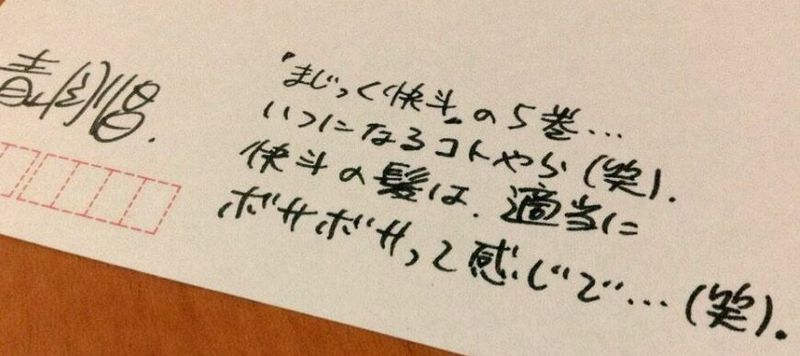 青山剛昌.
『まじっく快斗』の5巻…
いつになるコトやら(笑).
快斗の髪は、適当に
ボサボサって感じで…(笑).